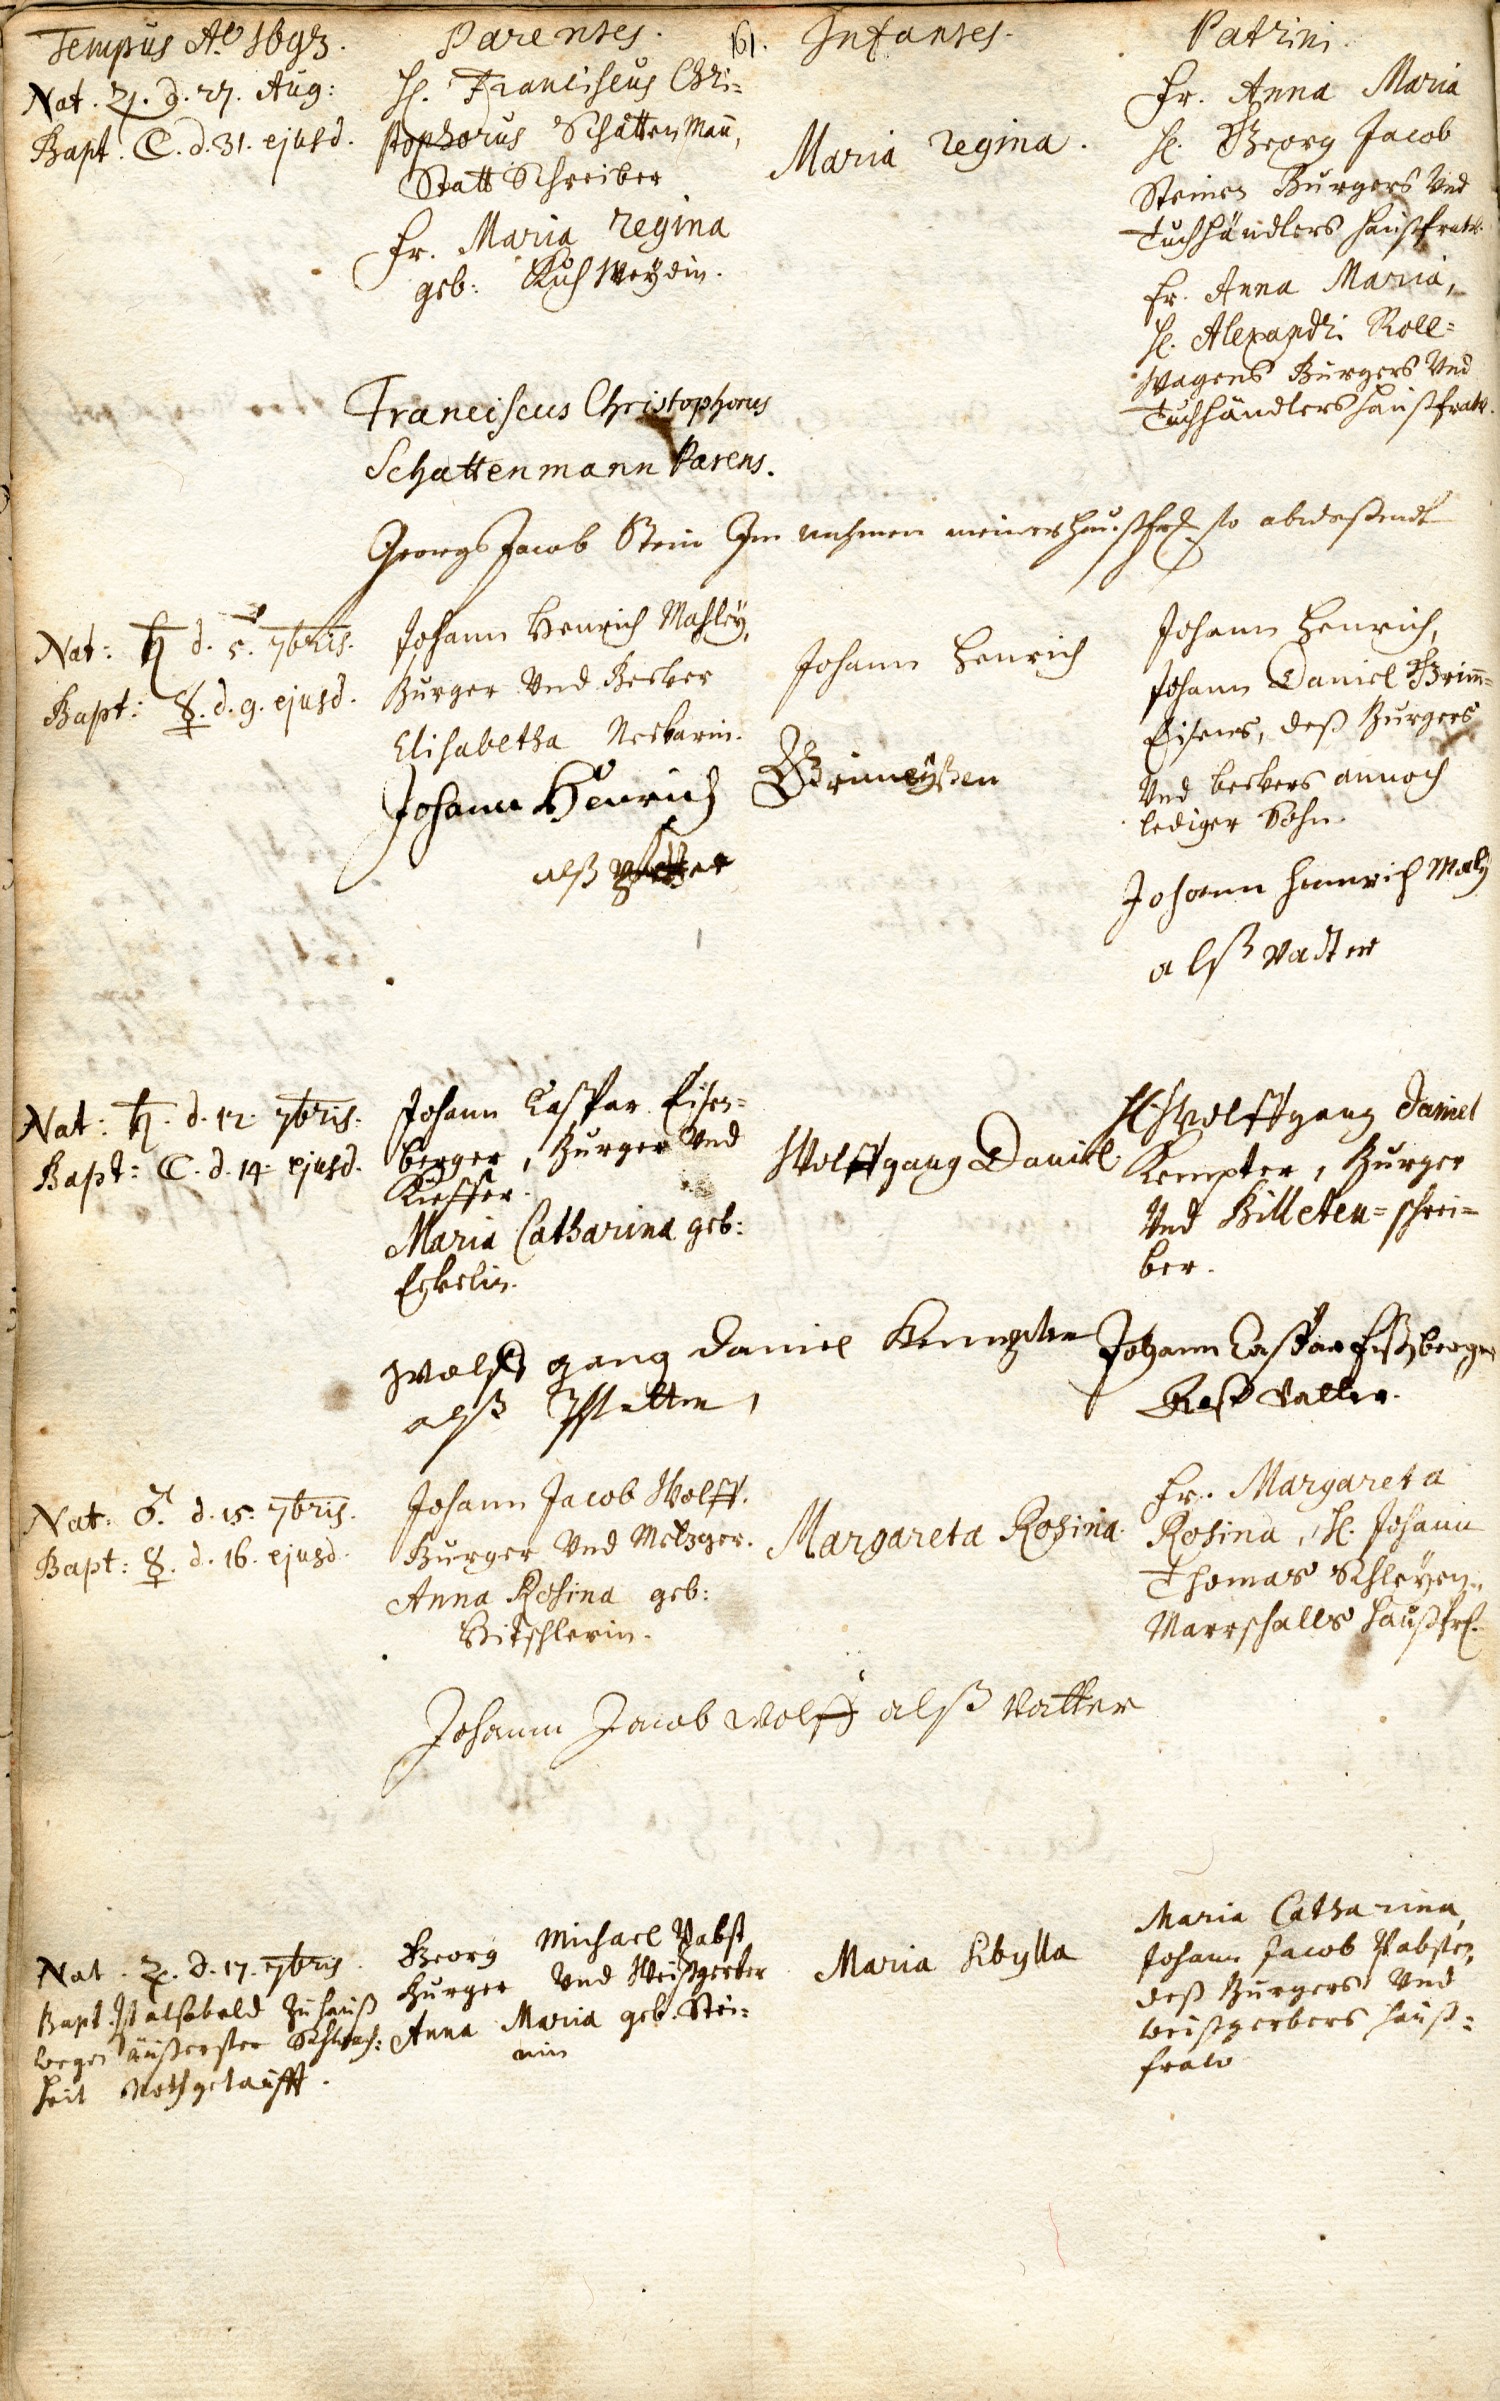 Tempus Aº 1693.
Parentes.
161.
Infantes.
Patrini
Nat. ♃. d. 27. Aug:
Bapt. ☾. d. 31. ejusd.
H. Franciscus Chri-
stophorus Schattenmañ,
Statt Schreiber
Fr. Maria Regina
geb: KuhWeydin.
Maria Regina.
Fr. Anna Maria
H. Georg Jacob
Steines Burgers Und
Tuchhändlers Haußfraw.
Fr. Anna Maria,
H. Alexandri Roll-
Wagens Burgers Und
Tuchhändlers Haußfraw.
Franciscus Christophorus
Schattenmann Parens.
Georg Jacob Stein Im nahmen meiner Haußfr. so
Nat: ♄ d. 5. 7bris.
Bapt: ☿. d. 9. ejusd.
Johann Henrich Mahley,
Burger Und Becker
Elisabetha Neckarin.
Johann Henrich
Johann Henrich,
Johann Daniel Grim-
Eisens, deß Burgers
Und beckers annoch
lediger Sohn.
Johann Henrich Grimeyßen
alß
Johann Henrich Maly
alß Vadter
Nat: ♄. d. 12. 7bris.
Bapt: ☾. d. 14. ejusd.
Johann Caspar Eisen-
berger, Burger Und
Kieffer.
Maria Catharina geb:
Eckelin.
Wolffgang Daniel
H. Wolffgang Daniel
Kempter, Burger
Und Billeten-schrei-
ber.
Wolff gang Daniel Kempter
alß Pfetter
Johann Caspar Eißenberger
Alß Vatter.
Nat: ♂. d. 15. 7bris.
Bapt: ☿. d. 16. ejusd.
Johann Jacob Wolff.
Burger Und Metzger.
Anna Rosina geb:
Bitschlerin.
Margareta Rosina.
Fr. Margareta
Rosina, H. Johann
Thomas Schleyen,
Marschalls Haußfr.
Johann Jacob Wolff alß Vatter
Nat. ♃. d. 17. 7bris.
Bapt. Ist alsobald zu hauß
wegen äußerster Schwach-
heit Nothgetaufft.
Georg Michael Pabst
Burger Und Weißgerber
Anna Maria geb. Stei-
nin
Maria Sibylla
Maria Catharina,
Johann Jacob Pabsten,
deß Burgers Und
Weißgerbers Hauß-
fraw